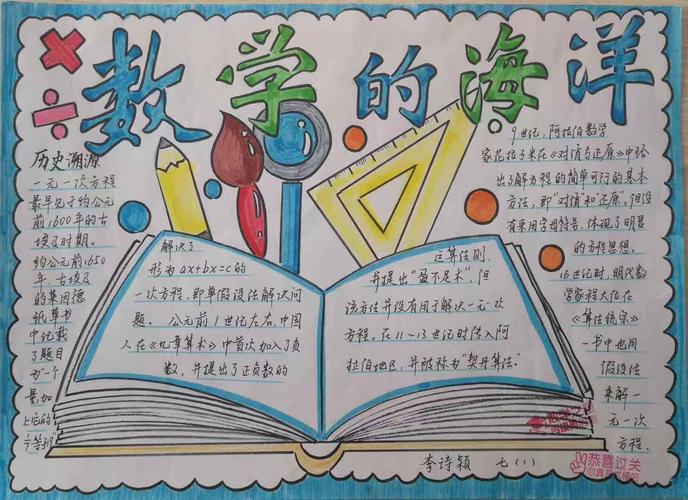 数学的海洋
历史溯源
一元一次方程
最早见于约公元
前1600年的古
埃及时期。
约公元前1650
年，古埃及
的莱因德
纸草书
中记载
了题目
为"一个
量,加
上它的
解决了
形为ax+bx=c的
一次方程,即单假设法解决问
题。 公元前1世纪左右,中国
人在《九章算术》中首次加入了负
数，并提出了正负数的
运算法则，
并提出"盈不足术"，但
该方法并没有用于解决一元一次
方程。在11~13世纪时传入阿
拉伯地区，并被称为"契丹算法"。
9世纪,阿拉伯数学
家花拉子米在《对消与还原》中给
出了解方程的简单可行的基本
方法，即"对消和还原"。但没
有采用字母符号，体现了明显
的方程思想。
16世纪时,明代数
学家程大位在
《算法统宗》
一书中也用
假设法
来解一
元一次
方程.
李诗颖 七(1)
恭喜过关